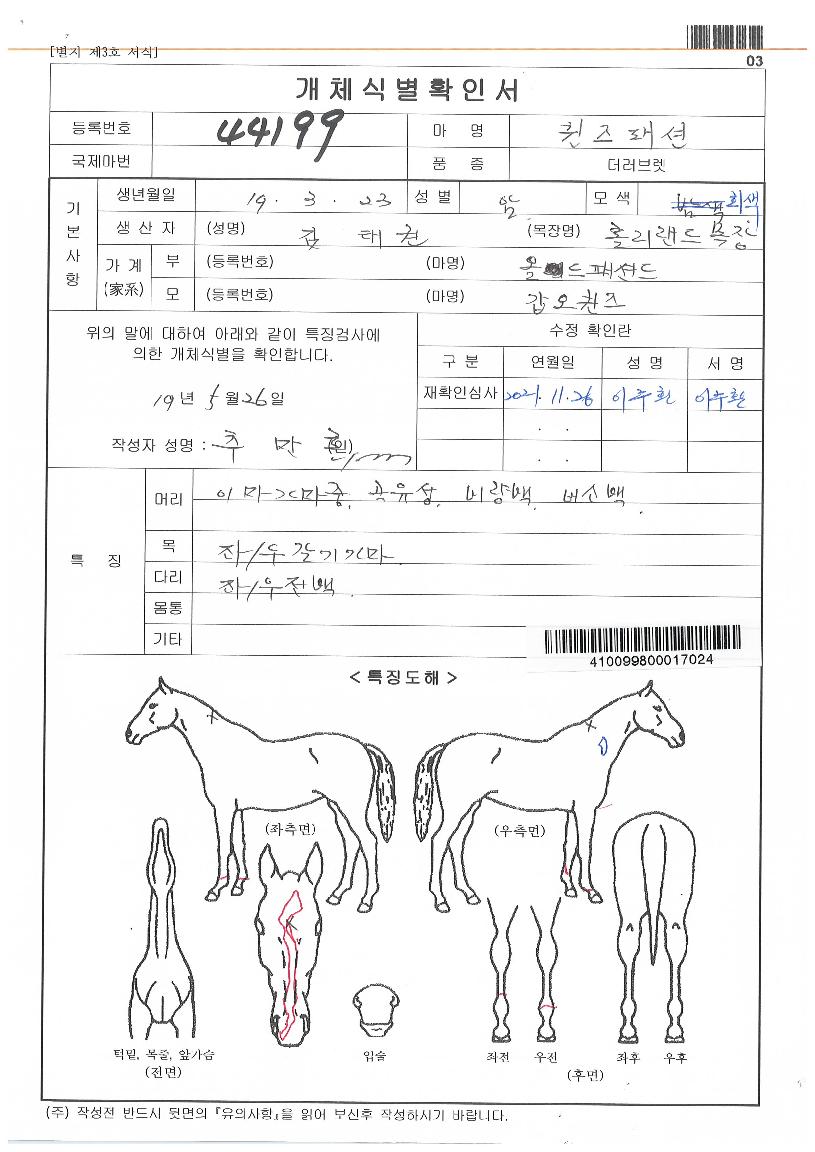 [별지 제3호 서식]
03
개체식별확인서
등록번호 44199 마 명 퀸즈패션
국제마번 품 종 더러브렛
기본사항
생년월일 19. 3. 23 성 별 암 모 색 회색
생 산 자 (성명) 김태권 (목장명) 홀리랜드목장
가 계 (家系) 부 (등록번호) (마명)
모 (등록번호) (마명) 갑오퀸즈
위의 말에 대하여 아래와 같이 특징검사에
의한 개체식별을 확인합니다.
19년 5월 26일
작성자 성명 : 추 만 (인)
수정 확인란
구 분 연월일 성 명 서 명
재확인심사 2021. 11. 26 이주환 이주환
. .
. .
특 징
머리 이마가마중, 곡유성, 비량백, 비소백.
목 좌/우갈기가마.
다리 좌/우전백.
몸통
기타
410099800017024
< 특징도해 >
(좌측면) (우측면)
턱밑, 목줄, 앞가슴
(전면)
입술
좌전 우전 좌후 우후
(후면)
(주) 작성전 반드시 뒷면의 『유의사항』을 읽어 보신후 작성하시기 바랍니다.